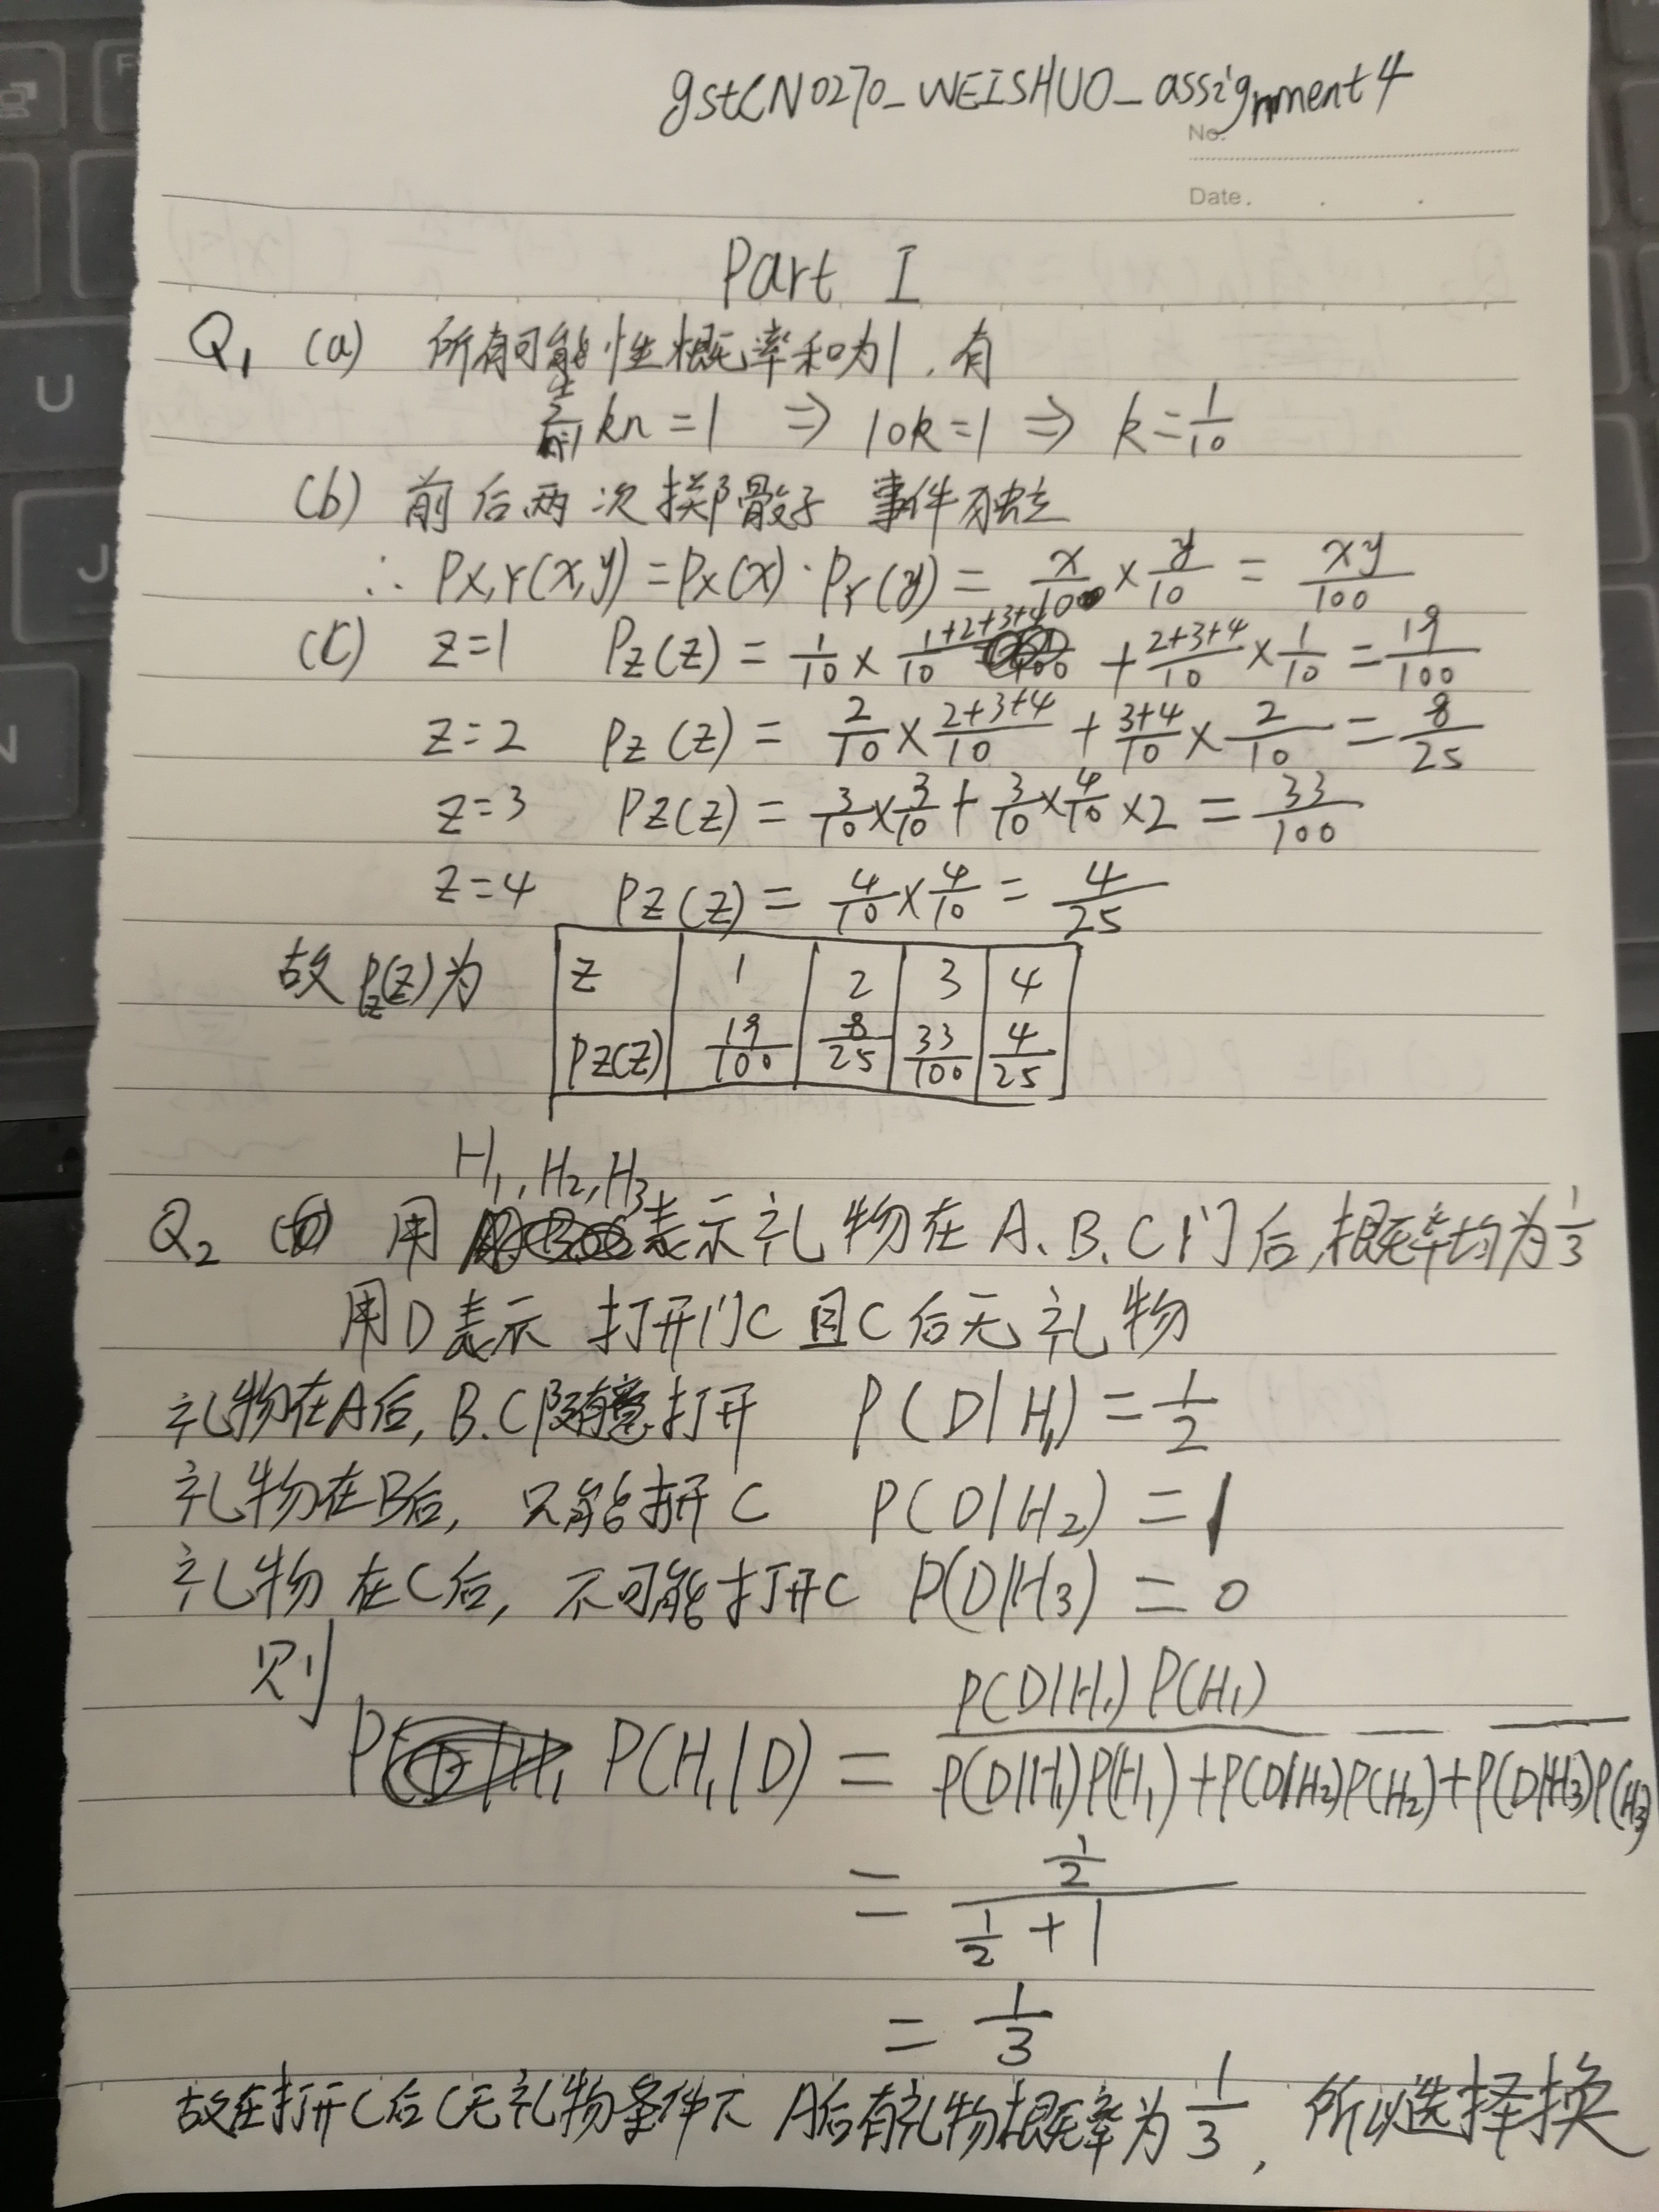 gstCN0270_WEISHUO_assignment4
No.
Date.
Part I
Q1 (a) 所有可能性概率和为1,有
∑_{n=1}^{4} kn = 1 ⇒ 10k=1 ⇒ k=1/10
(b) 前后两次掷骰子 事件独立
∴ P_{X,Y}(x,y) = P_X(x)·P_Y(y) = x/10 × y/10 = xy/100
(c) z=1 P_Z(z) = 1/10 × (1+2+3+4)/10 + (2+3+4)/10 × 1/10 = 19/100
z=2 P_Z(z) = 2/10 × (2+3+4)/10 + (3+4)/10 × 2/10 = 8/25
z=3 P_Z(z) = 3/10 × 3/10 + 3/10 × 4/10 × 2 = 33/100
z=4 P_Z(z) = 4/10 × 4/10 = 4/25
故 P_Z(z) 为
z 1 2 3 4
P_Z(z) 19/100 8/25 33/100 4/25
Q2 用 H1,H2,H3 表示礼物在A、B、C门后,概率均为1/3
用D表示 打开门C且C后无礼物
礼物在A后,B.C随意打开 P(D|H1) = 1/2
礼物在B后,只能打开C P(D|H2) = 1
礼物在C后,不可能打开C P(D|H3) = 0
则
P(H1|D) = P(D|H1)P(H1) / P(D|H1)P(H1)+P(D|H2)P(H2)+P(D|H3)P(H3)
= 1/2 / (1/2 + 1)
= 1/3
故在打开C后C无礼物条件下 A后有礼物概率为1/3,所以选择换
U
J
N